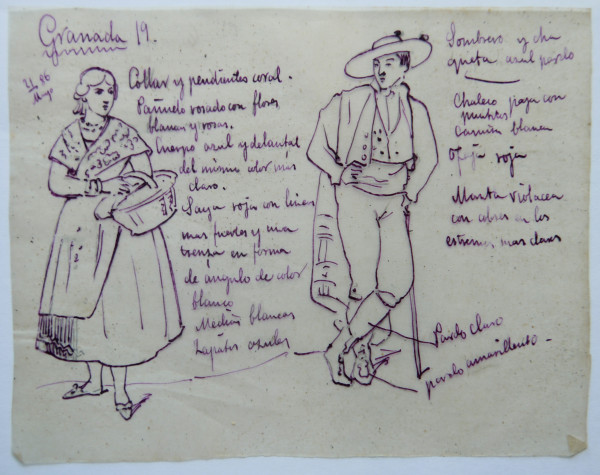 Granada 19.
86
Mayo
Collar y pendientes coral.
Pañuelo rosado con flores
blancas y rosas.
Cuerpo azul y delantal
del mismo color mas
claro.
Saya roja con lineas
mas fuertes y una
trenza en forma
de angulo de color
blanco
Medias blancas
Zapatos azules
Sombrero y cha
queta azul pardo
Chaleco paja con
pintras
Camisa blanca
Faja roja
Manta violacea
con cabos en los
estremos mas claros
Pardo claro
pardo amarillento -